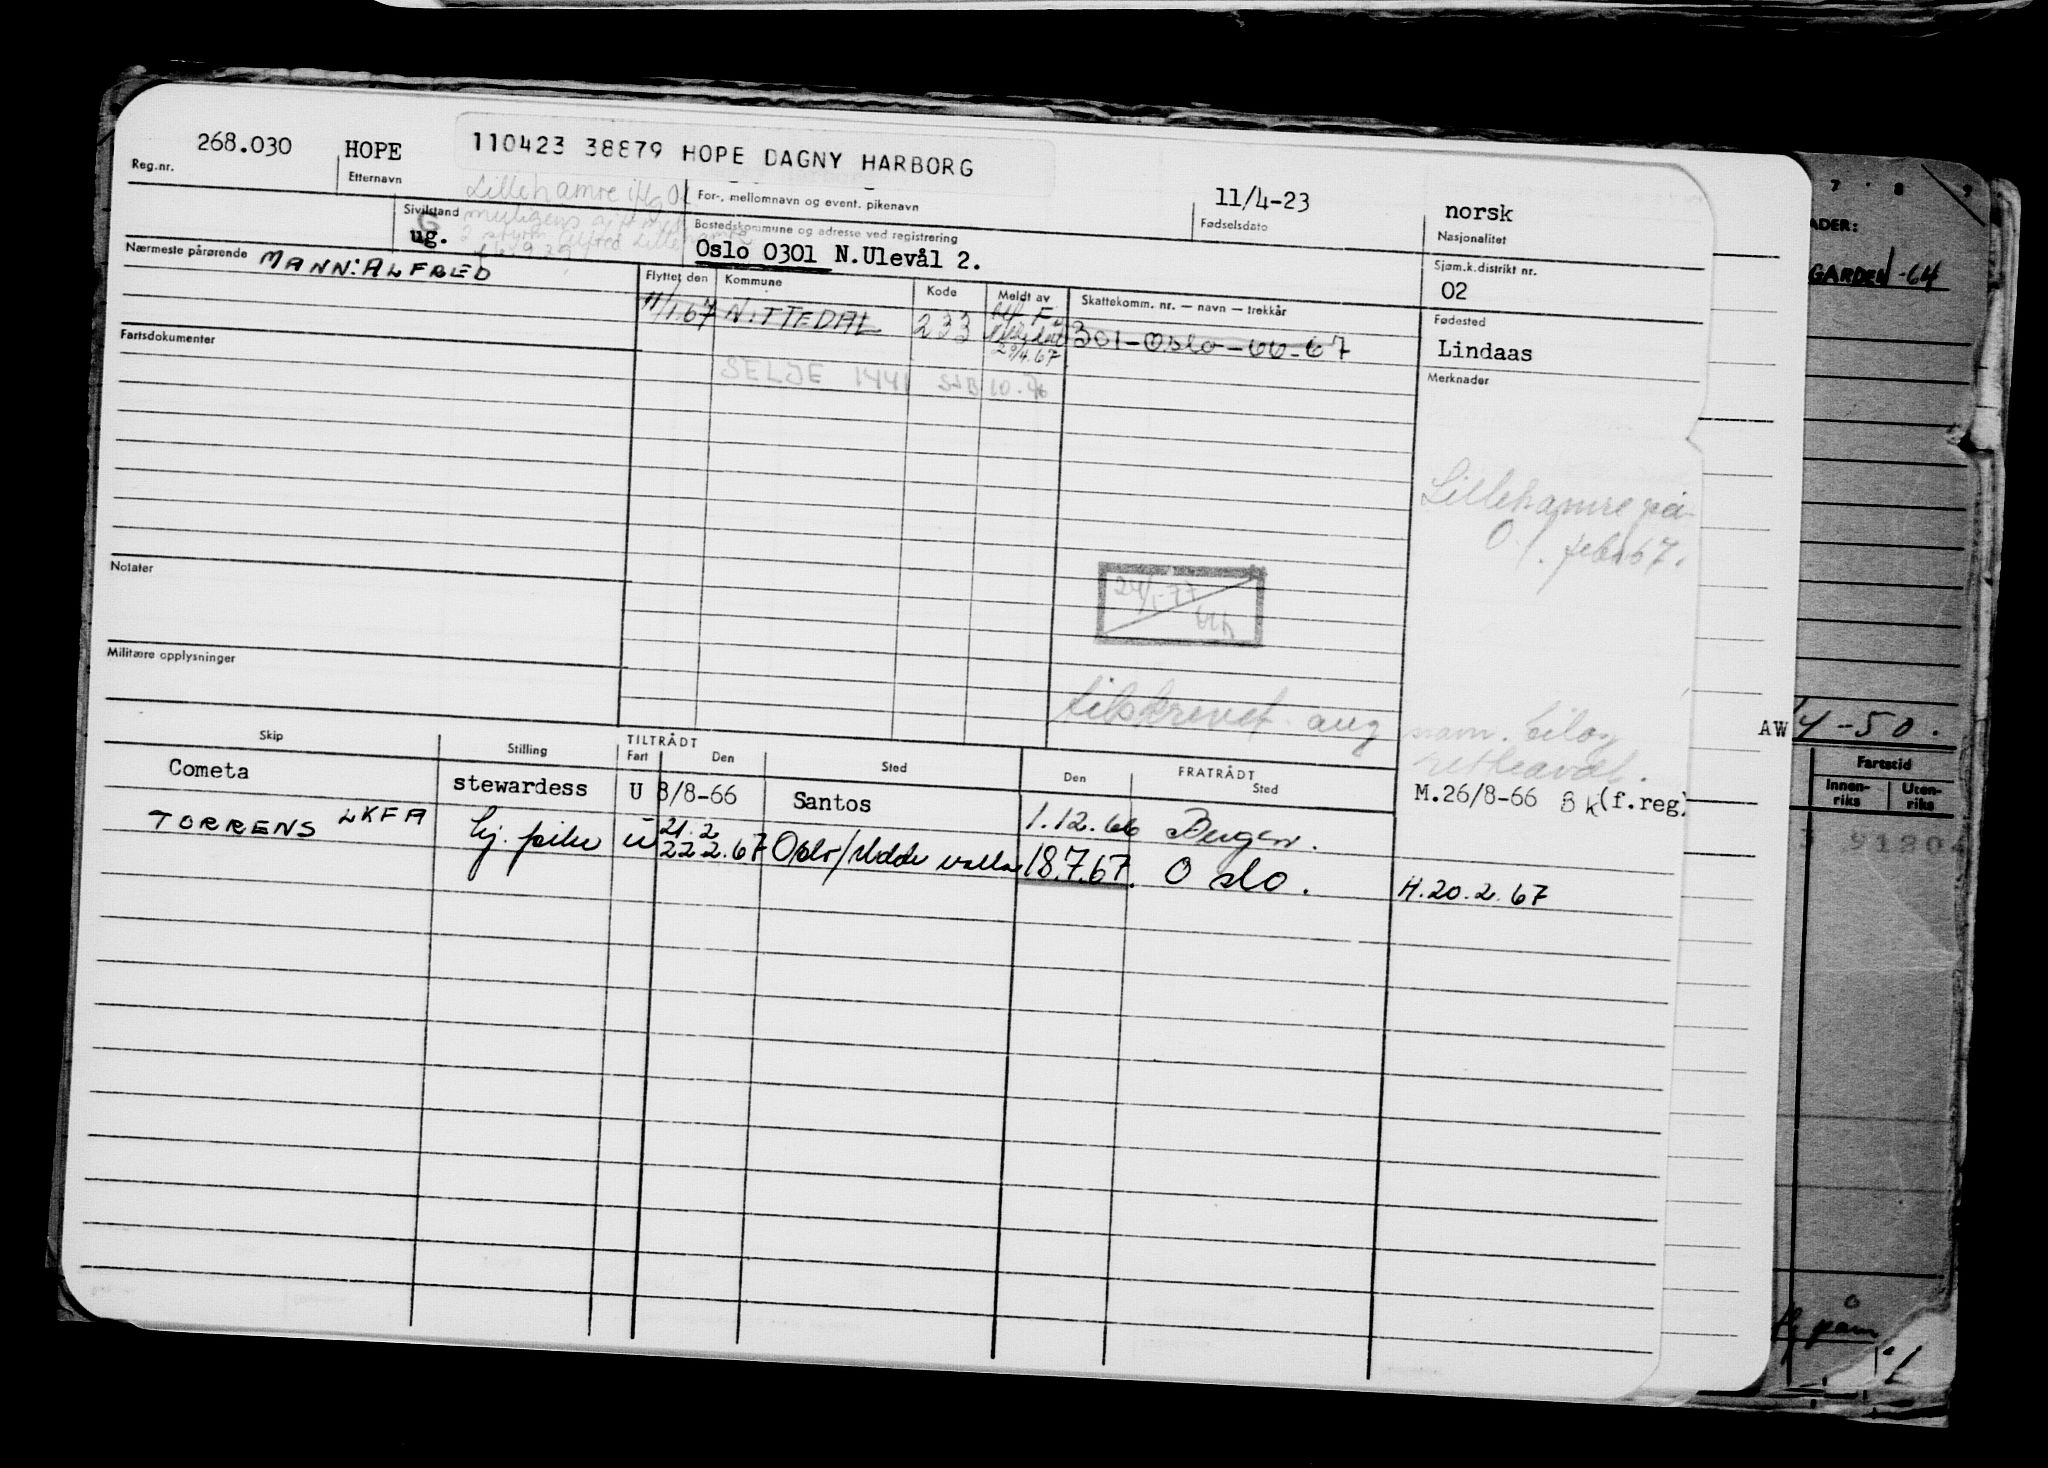 268.030 HOPE 110423 38879 HOPE DAGNY HARBORG 11/4-23 norsk
Reg.nr. Etternavn For-, mellomnavn og event. pikenavn Fødselsdato Nasjonalitet
Lillehamre
Sivilstand Bostedskommune og adresse ved registrering Sjøm.k.distrikt nr.
ug. Oslo 0301 N.Ulevål 2. 02
Nærmeste pårørende MANN: ALFRED
Flyttet den Kommune Kode Meldt av Skattekomm. nr. — navn — trekkår Fødested
11/1.67 NITTEDAL 233 29/4.67 301-Oslo-66-67 Lindaas
Fartsdokumenter SELJE 1441 10. Merknader
Lillehamre på
O. febr 67.
24/1-77
Notater
Militære opplysninger
tilskrevet ang navn.
Skip Stilling TILTRÅDT Fart Den Sted FRATRÅDT Den Sted
Cometa stewardess U 8/8-66 Santos 1.12.66 Bergen. M.26/8-66 Bk(f.reg)
TORRENS LKFA U 21.2 22 2.67 Oslo/Uddevalla 18.7.67. Oslo. H.20.2.67
7 8 9
ADER:
GARDEN -64
AW 4-50.
Fartstid
Innen-riks Uten-riks
9180